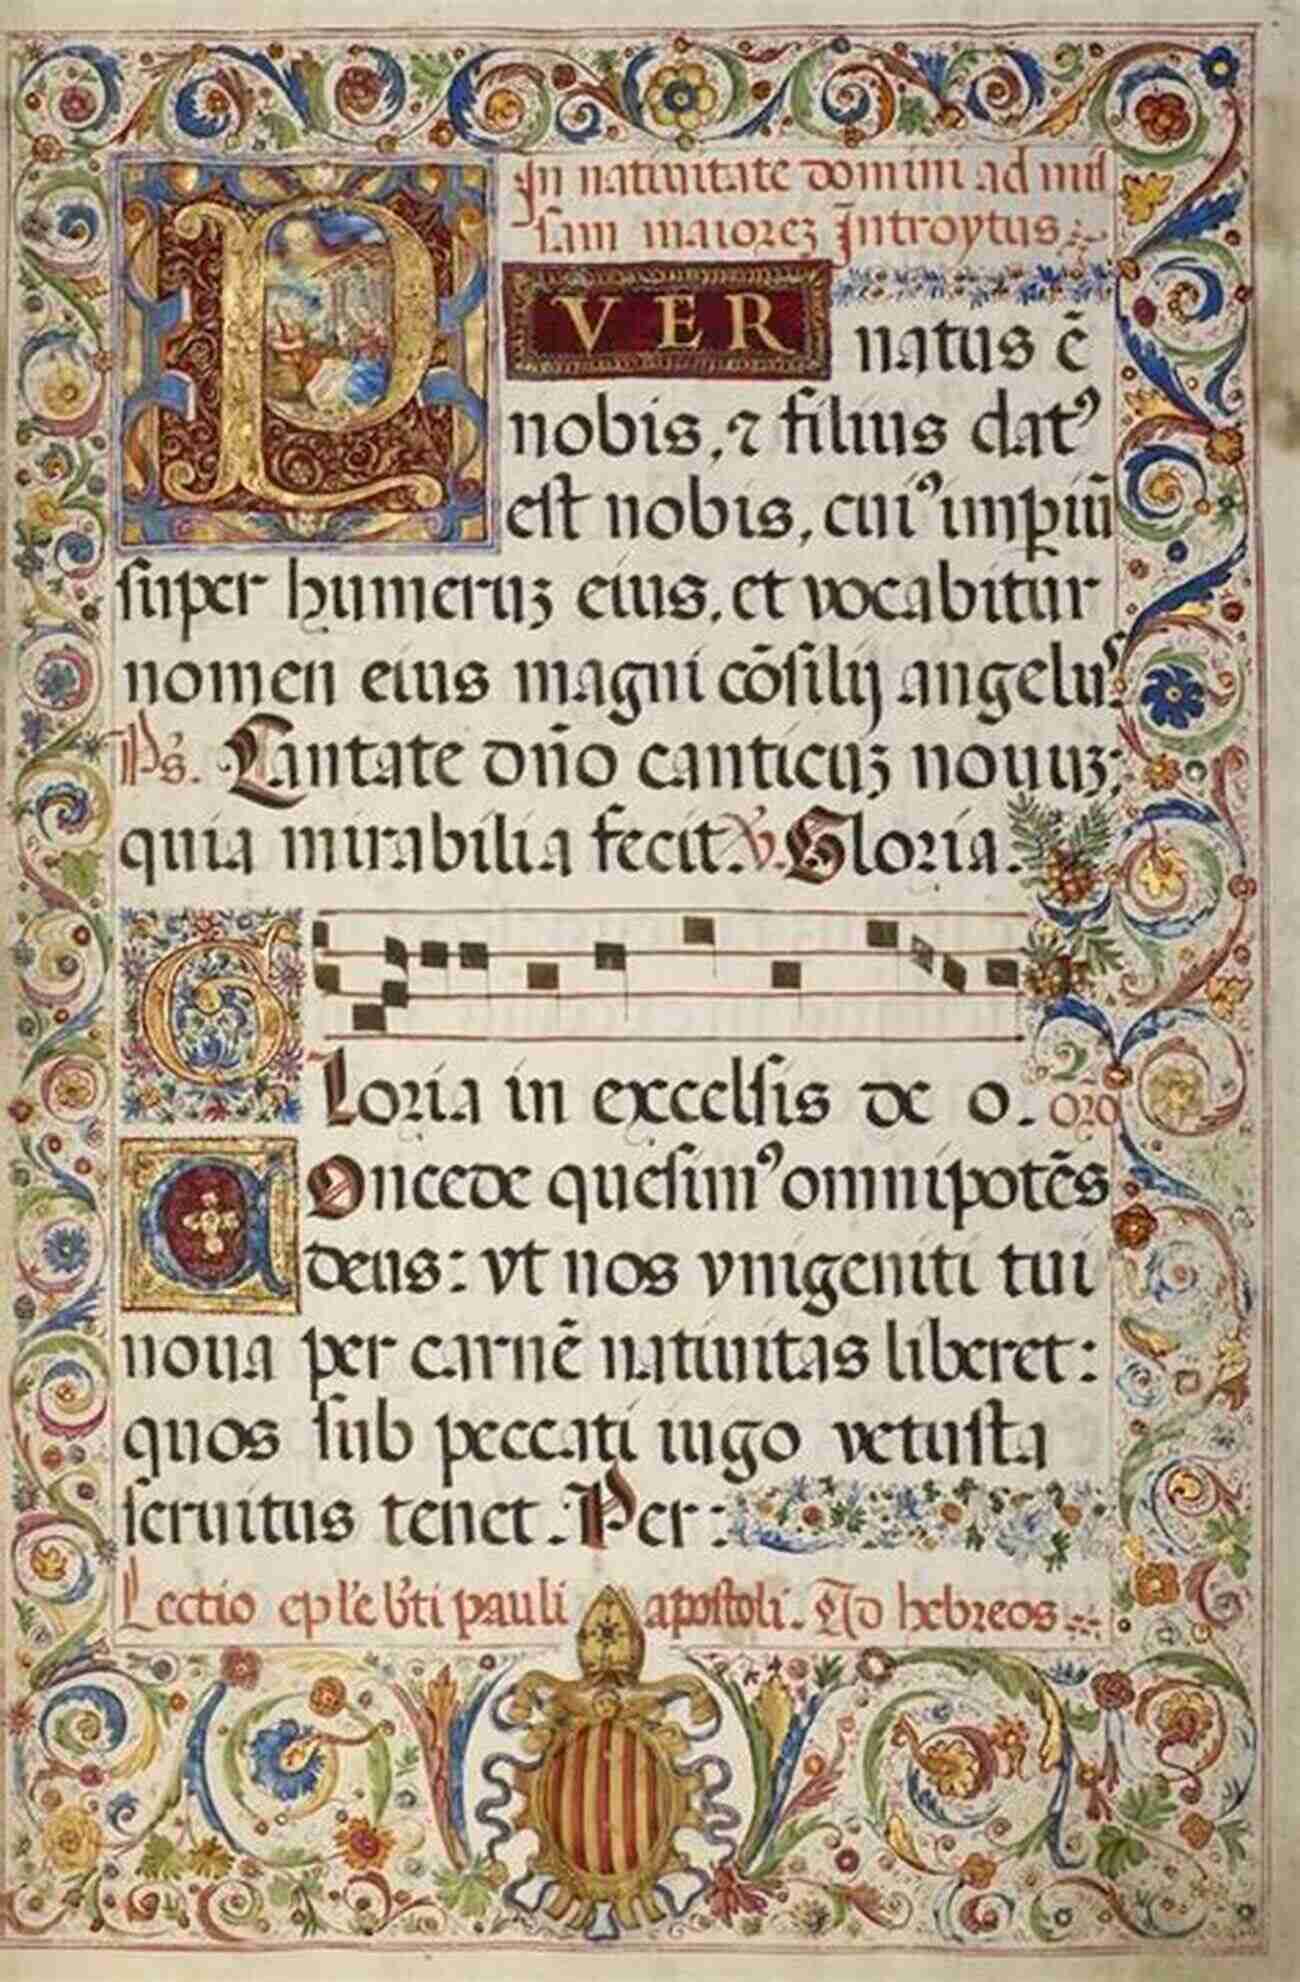 In natiuitate domini ad mis
sam maiorez Introytus
P VER
natus ē
nobis, ⁊ filius datꝰ
est nobis, cuiꝰ impiū
super humeruz eius, et vocabitur
nomen eius magni cōsilij angelus.
Ps. Cantate dño canticuz nouuz;
quia mirabilia fecit. V. Gloria.
G Loria in excelsis de o. oro
C Oncede quesimꝰ omnipotēs
deus: vt nos vnigeniti tui
noua per carnē natiuitas liberet:
quos sub peccati iugo vetusta
seruitus tenet. Per:
Lectio epl'e b'ti pauli apostoli. Ad hebreos